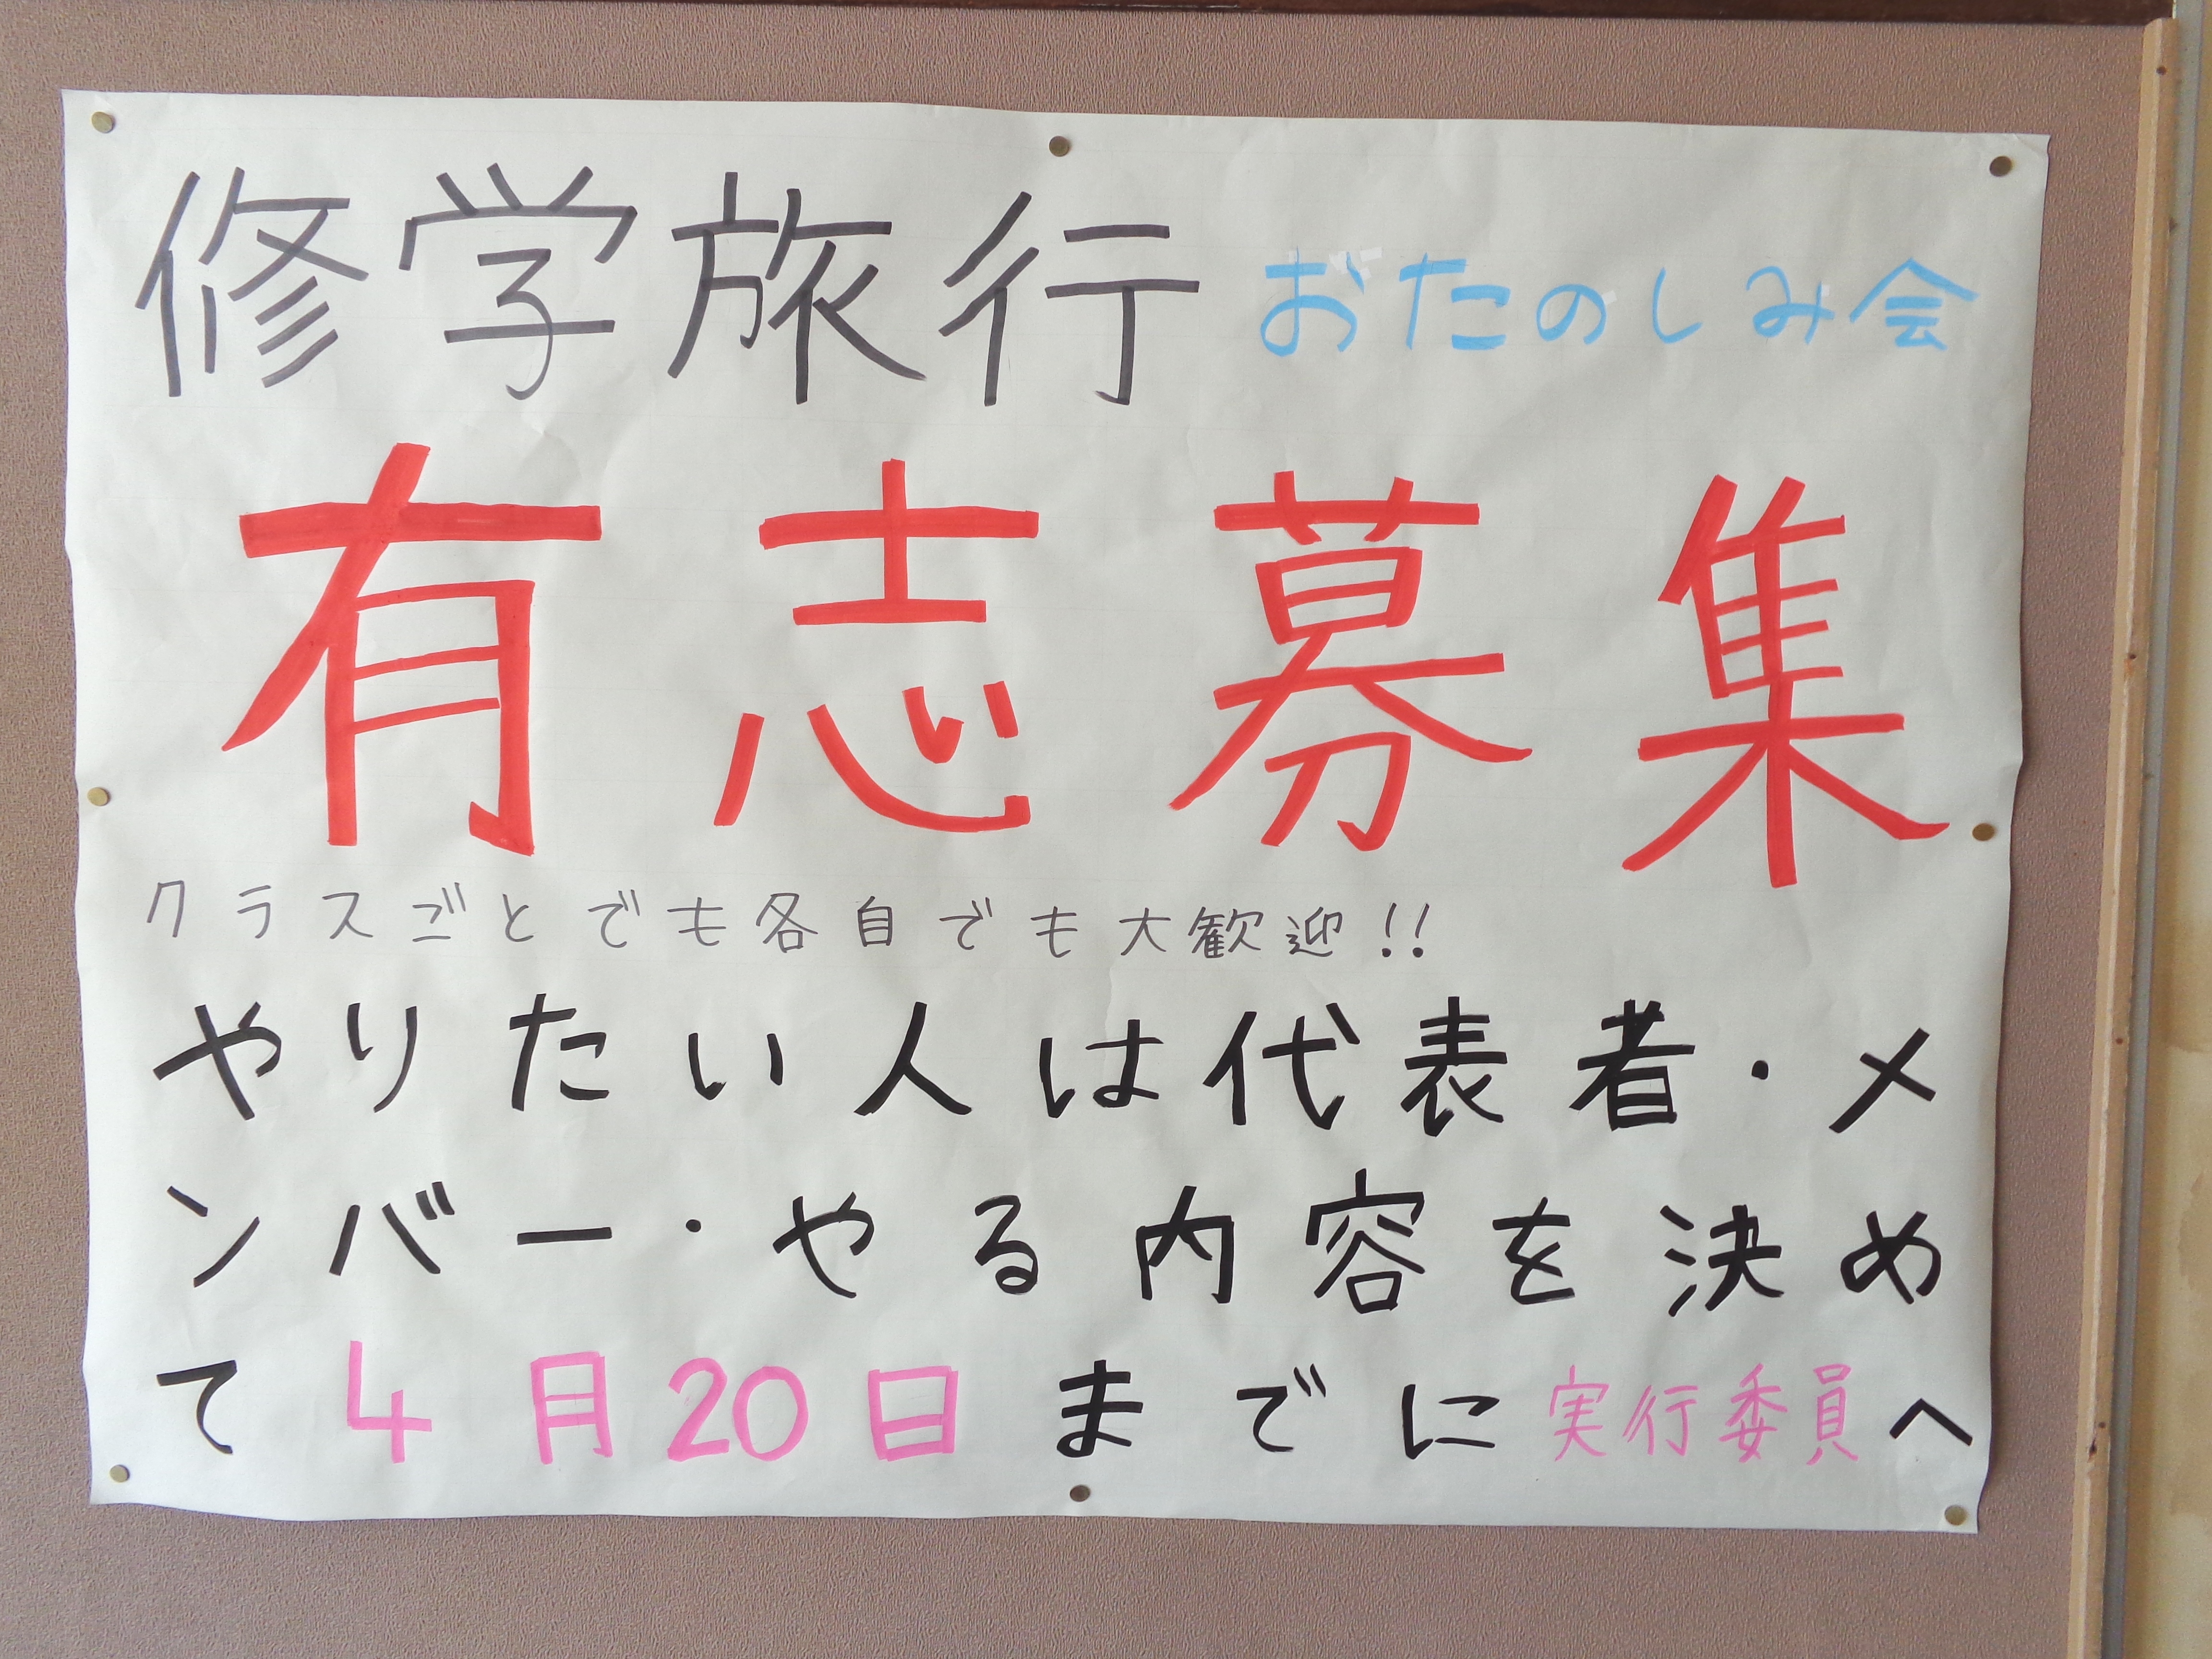 修学旅行 おたのしみ会
有志募集
クラスごとでも各自でも大歓迎!!
やりたい人は代表者・メ
ンバー・やる内容を決め
て4月20日までに実行委員へ